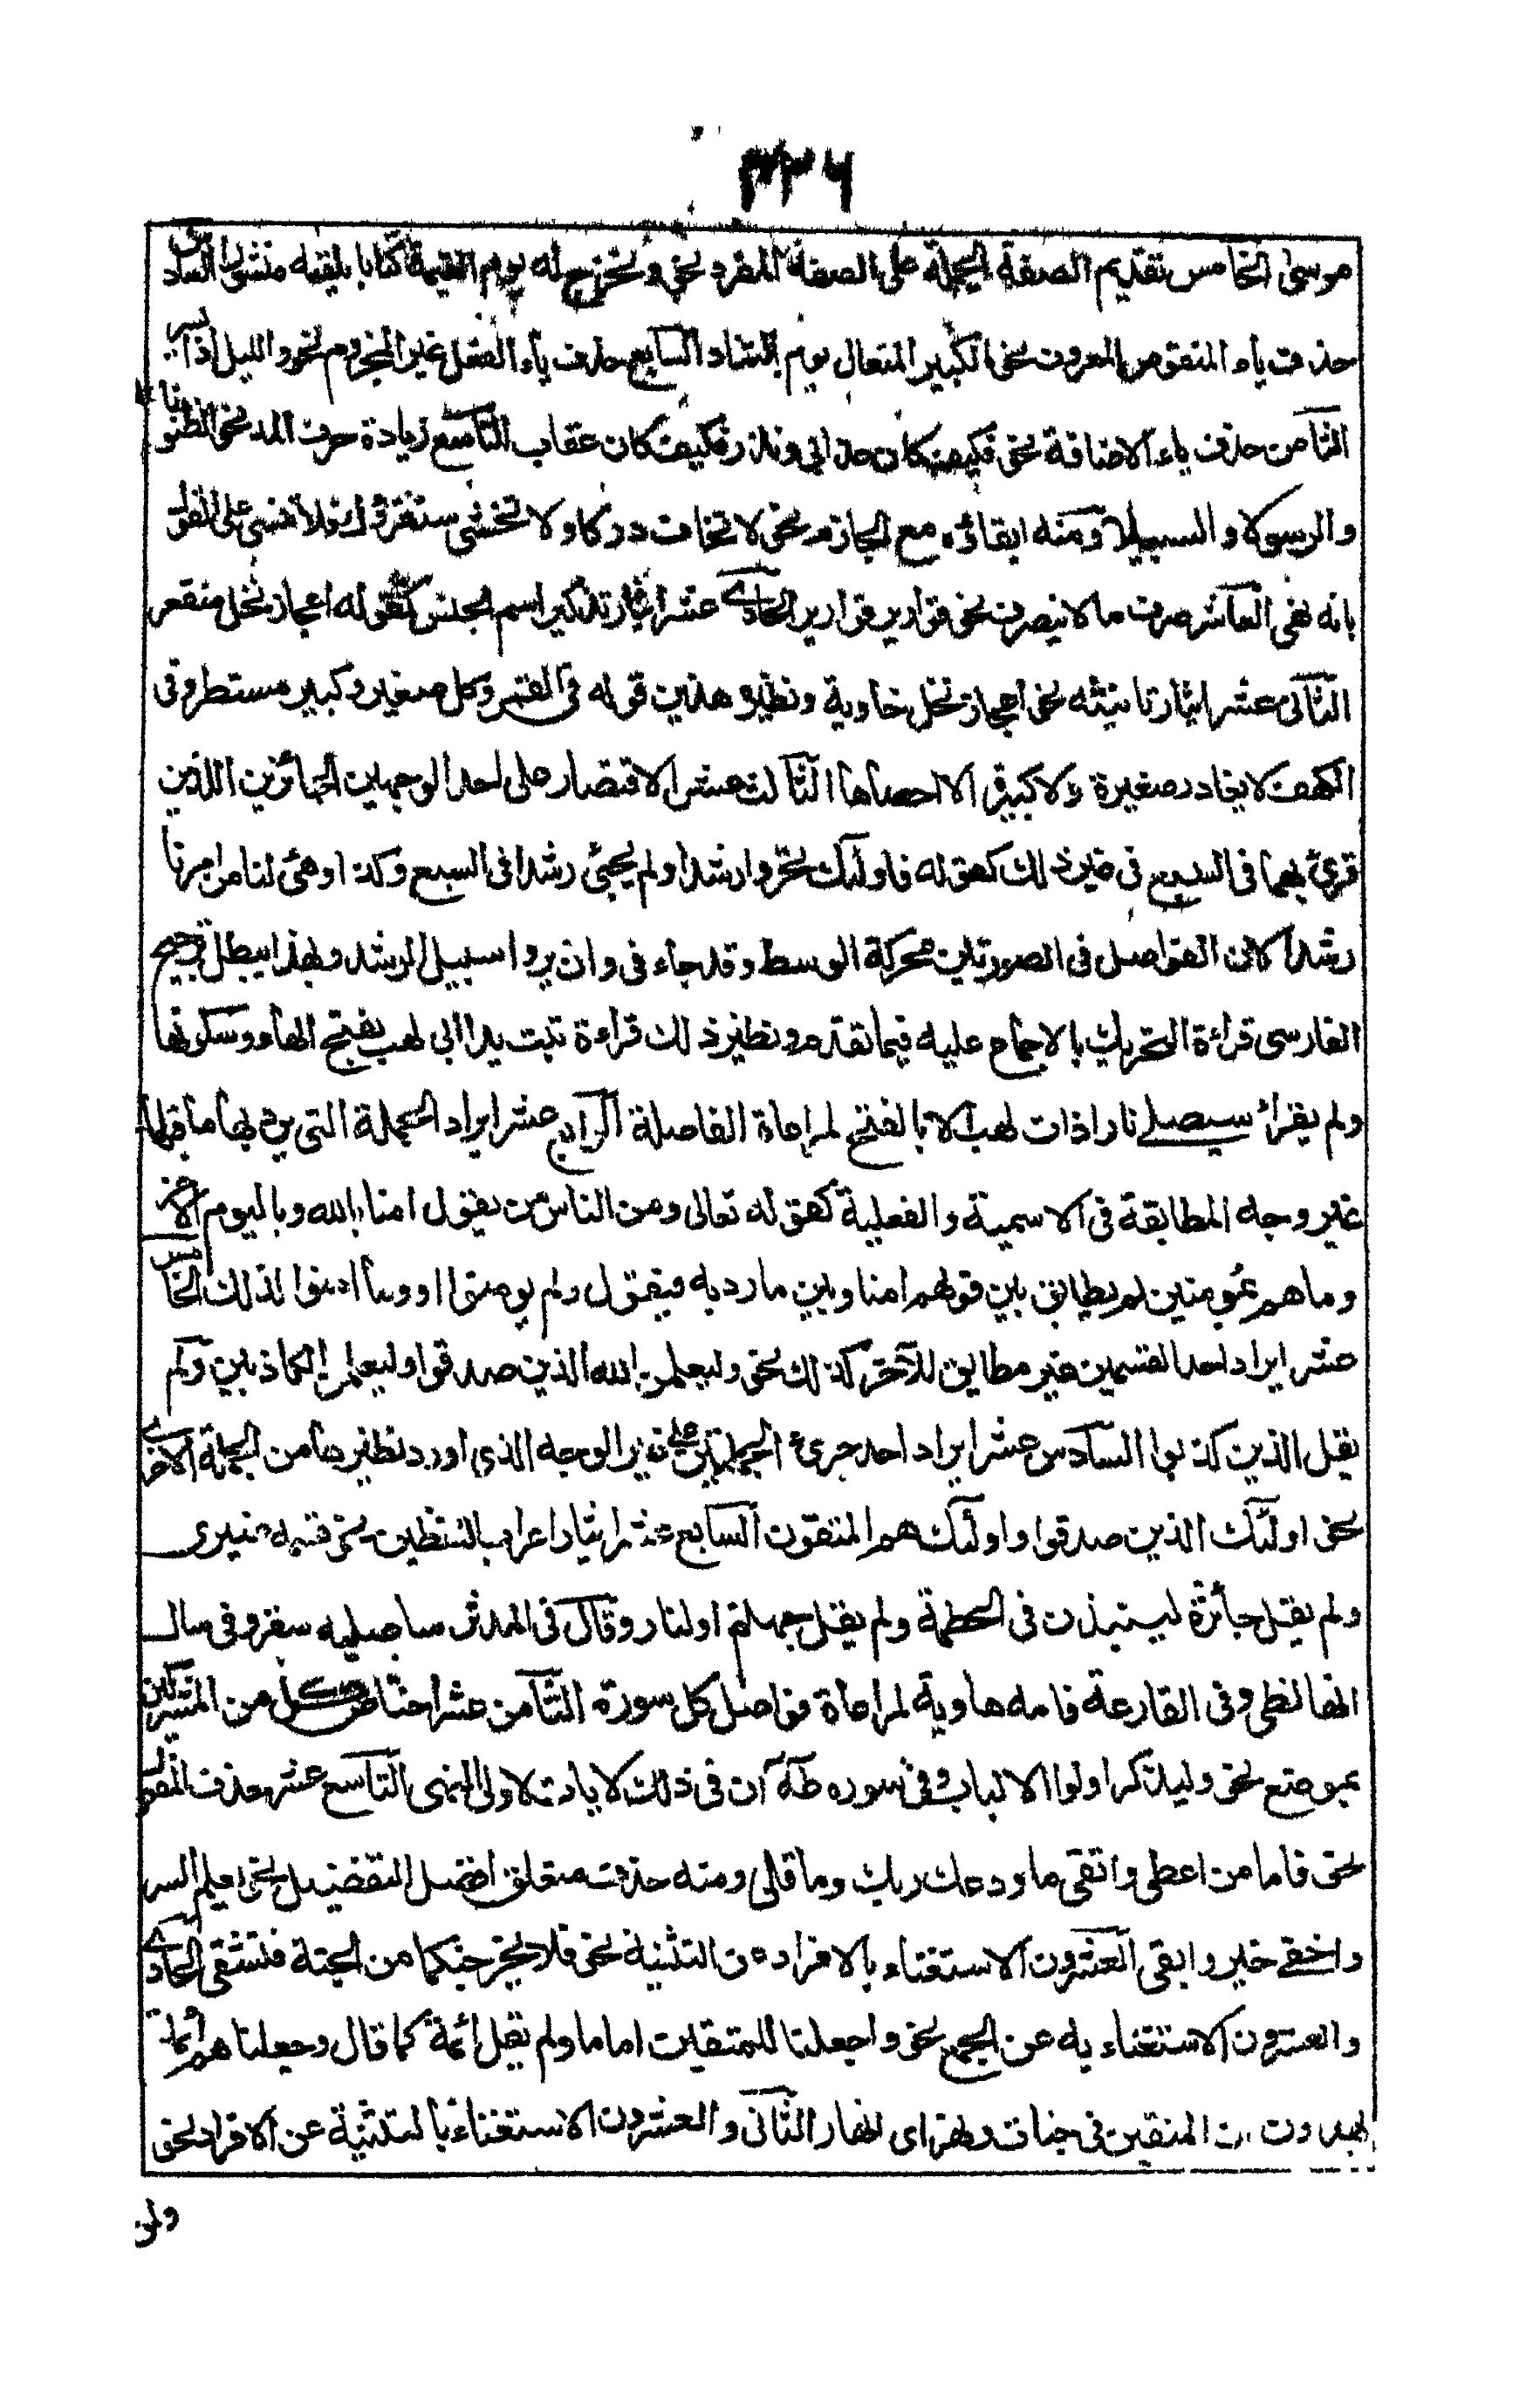 ٣٢٦
موسى الخامس تقديم الصفة الجملة على الصفة المفرد نحو ونخرج له يوم القيمة كتابا يلقيه منشورا السادس
حذف ياء المنقوص المعروف نحو الكبير المتعال يوم التناد السابع حذف ياء الفعل غير المجزوم نحو والليل اذا يسر
الثامن حذف ياء الاضافة نحو فكيف كان عذابي ونذر فكيف كان عقاب التاسع زيادة حرف المد نحو الظنونا
والرسولا والسبيلا ومنه ابقاؤه مع الجازم نحو لا تخاف دركا ولا تخشى سنقرئك فلا تنسى على القول
بانه نفى العاشر صرف ما لا ينصرف نحو قوارير قوارير الحادي عشر ايثار تذكير اسم الجنس كقوله اعجاز نخل منقعر
الثانى عشر ايثار تانيثه نحو اعجاز نخل خاوية ونظير هذين قوله فى القمر وكل صغير وكبير مستطر وفى
الكهف لا يغادر صغيرة ولا كبيرة الا احصاها الثالث عشر الاقتصار على احد الوجهين الجائزين اللذين
قرئ بهما فى السبع فى غير ذلك كقوله فاولئك تحروا رشدا ولم يجئ رشدا فى السبع وكذا وهئ لنا من امرنا
رشدا لان الفواصل فى الصورتين محركة الوسط وقد جاء فى وان يروا سبيل الرشد وبهذا يبطل ترجيح
الفارسى قراءة التحريك بالاجماع عليه فيما تقدم ونظير ذلك قراءة تبت يدا ابى لهب بفتح الهاء وسكونها
ولم يقرأ سيصلى نارا ذات لهب الا بالفتح لمراعاة الفاصلة الرابع عشر ايراد الجملة التى رد بها ما قبلها
غير وجه المطابقة فى الاسمية والفعلية كقوله تعالى ومن الناس من يقول امنا بالله وباليوم الاخر
وما هم بمؤمنين لم يطابق بين قولهم امنا وبين ما رد به فيقول ولم يومنوا او وما امنوا لذلك الخامس
عشر ايراد احد القسمين غير مطابق للآخر كذلك نحو وليعلمن الله الذين صدقوا وليعلمن الكاذبين ولم
يقل الذين كذبوا السادس عشر ايراد احد جزئ الجملتين على غير الوجه الذى اورد نظيرها من الجملة الاخرى
نحو اولئك الذين صدقوا واولئك هم المتقون السابع عشر ايثار اغرب اللفظين نحو قسمه ضيزى
ولم يقل جائزة لينبذن فى الحطمة ولم يقل جهنم او لنار وقال فى المدثر ساصليه سقر وفى سال
انها لظى وفى القارعة فامه هاوية لمراعاة فواصل كل سورة الثامن عشر اختاص كل من المشتركين
بموضع نحو وليذكر اولوا الالباب وفى سوره طه ان فى ذلك لايات لاولى النهى التاسع عشر حذف المفعول
نحو فاما من اعطى واتقى ما ودعك ربك وما قلى ومنه حذف متعلق افضل التفضيل نحو يعلم السر
واخفى خير وابقى العشرون الاستغناء بالافراد عن التثنية نحو فلا يخرجنكما من الجنة فتشقى الحادى
والعشرون الاستغناء به عن الجمع نحو واجعلنا للمتقين اماما ولم يقل ائمة كما قال وجعلناهم ائمة
يهدون ان المتقين فى جنات ونهر اى انهار الثانى والعشرون الاستغناء بالتثنية عن الافراد نحو
ولمن